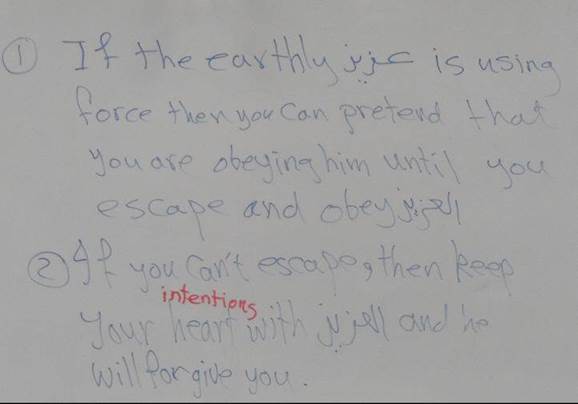 ① If the earthly عزيز is using
force then you can pretend that
you are obeying him until you
escape and obey العزيز
② If you can't escape, then keep
intentions
your heart with العزيز and he
will forgive you.